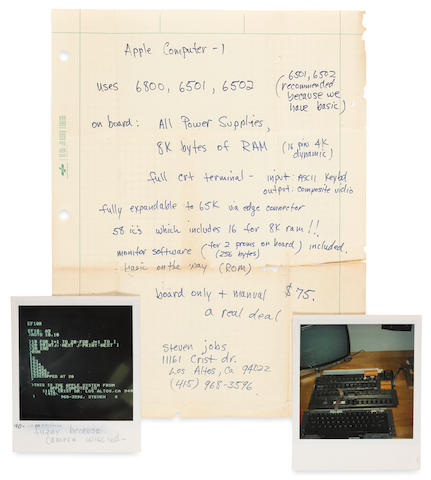 Apple Computer - 1
uses 6800, 6501, 6502
(6501, 6502
recommended
because we
have basic)
on board: All Power Supplies,
8K bytes of RAM (16 pin 4K
dynamic)
full crt terminal - input: ASCII Keybd
output: composite vidio
fully expandable to 65K via edge connector
58 ic's which includes 16 for 8K ram!!
monitor software (for 2 proms on board) included.
(256 bytes)
basic on the way (ROM)
board only + manual $75.
a real deal
steven jobs
11161 Crist dr.
Los Altos, Ca 94022
(415) 968-3596
THIS IS THE APPLE SYSTEM FROM
968-3596, STEVEN
fuzzy because
camera wiggled-